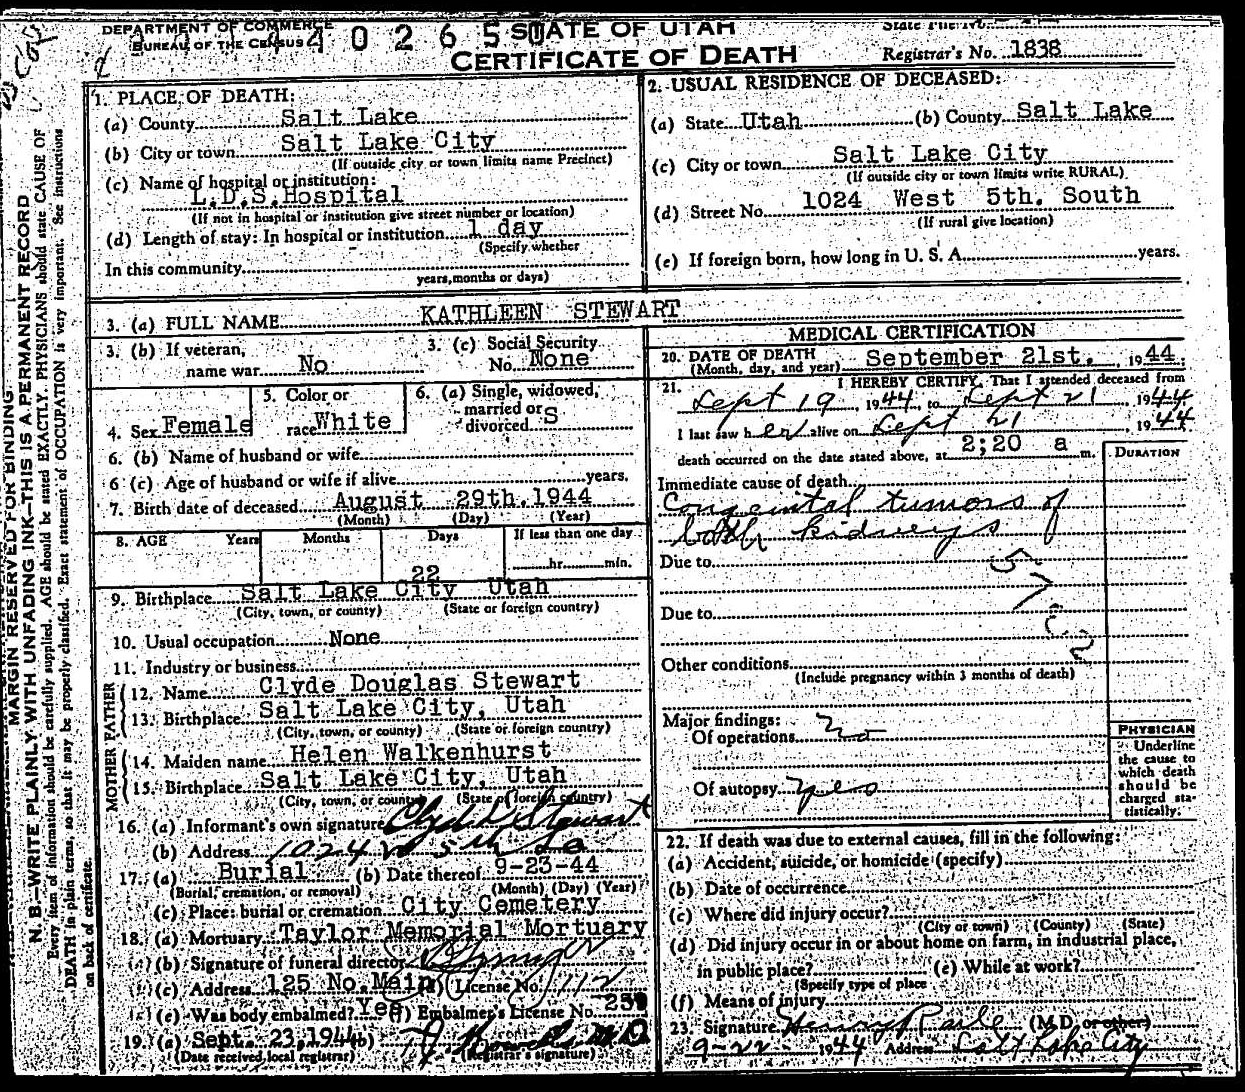 DEPARTMENT OF COMMERCE
BUREAU OF THE CENSUS
4 0 2 6 5
STATE OF UTAH
CERTIFICATE OF DEATH
Registrar's No. 1838
MARGIN RESERVED FOR BINDING
N. B.—WRITE PLAINLY WITH UNFADING INK—THIS IS A PERMANENT RECORD
Every item of information should be carefully supplied. AGE should be stated EXACTLY. PHYSICIANS should state CAUSE OF
DEATH in plain terms, so that it may be properly classified. Exact statement of OCCUPATION is very important. See instructions
on back of certificate.
1. PLACE OF DEATH:
(a) County Salt Lake
(b) City or town Salt Lake City
(If outside city or town limits name Precinct)
(c) Name of hospital or institution:
L.D.S.Hospital
(If not in hospital or institution give street number or location)
(d) Length of stay: In hospital or institution 1 day
(Specify whether
In this community
years, months or days)
2. USUAL RESIDENCE OF DECEASED:
(a) State Utah (b) County Salt Lake
(c) City or town Salt Lake City
(If outside city or town limits write RURAL)
(d) Street No. 1024 West 5th. South
(If rural give location)
(e) If foreign born, how long in U. S. A. years.
3. (a) FULL NAME KATHLEEN STEWART
3. (b) If veteran,
name war No
3. (c) Social Security
No. None
4. Sex Female
5. Color or
race White
6. (a) Single, widowed,
married or
divorced S
6. (b) Name of husband or wife
6 (c) Age of husband or wife if alive years.
7. Birth date of deceased August 29th.1944
(Month) (Day) (Year)
8. AGE Years Months Days If less than one day
22 hr. min.
9. Birthplace Salt Lake City Utah
(City, town, or county) (State or foreign country)
10. Usual occupation None
11. Industry or business
FATHER
12. Name Clyde Douglas Stewart
13. Birthplace Salt Lake City, Utah
(City, town, or county) (State or foreign country)
MOTHER
14. Maiden name Helen Walkenhurst
15. Birthplace Salt Lake City, Utah
(City, town, or county) (State of foreign country)
16. (a) Informant's own signature Clyde D Stewart
(b) Address 1024 W 5th So
17. (a) Burial (b) Date thereof 9-23-44
(Burial, cremation, or removal) (Month) (Day) (Year)
(c) Place: burial or cremation City Cemetery
18. (a) Mortuary Taylor Memorial Mortuary
(b) Signature of funeral director
(c) Address 125 No.Main License No. 112
(e) Was body embalmed? Yes (f) Embalmer's License No. 259
19. (a) Sept. 23,1944 (b) M.D.
(Date received local registrar) (Registrar's signature)
MEDICAL CERTIFICATION
20. DATE OF DEATH September 21st. 1944
(Month, day, and year)
21. I HEREBY CERTIFY, That I attended deceased from
Sept 19, 1944, to Sept 21 1944
I last saw her alive on Sept 21 1944
death occurred on the date stated above, at 2;20 a m.
DURATION
Immediate cause of death
Congenital tumors of
both kidneys
Due to
Due to
Other conditions
(Include pregnancy within 3 months of death)
Major findings:
Of operations no
Of autopsy yes
PHYSICIAN
Underline
the cause to
which death
should be
charged sta-
tistically.
22. If death was due to external causes, fill in the following:
(a) Accident, suicide, or homicide (specify)
(b) Date of occurrence
(c) Where did injury occur?
(City or town) (County) (State)
(d) Did injury occur in or about home on farm, in industrial place,
in public place? (e) While at work?
(Specify type of place
(f) Means of injury
23. Signature Henry (M.D. or other)
9-22- 1944 Address Salt Lake City